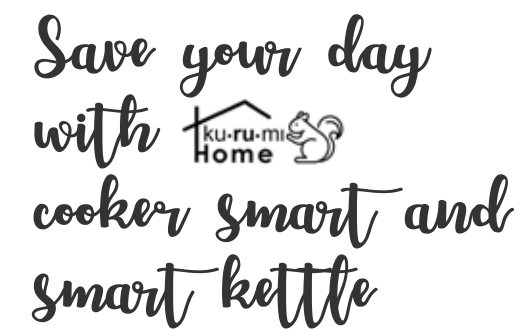 Save your day
with ku·ru·mi
Home
cooker smart and
smart kettle